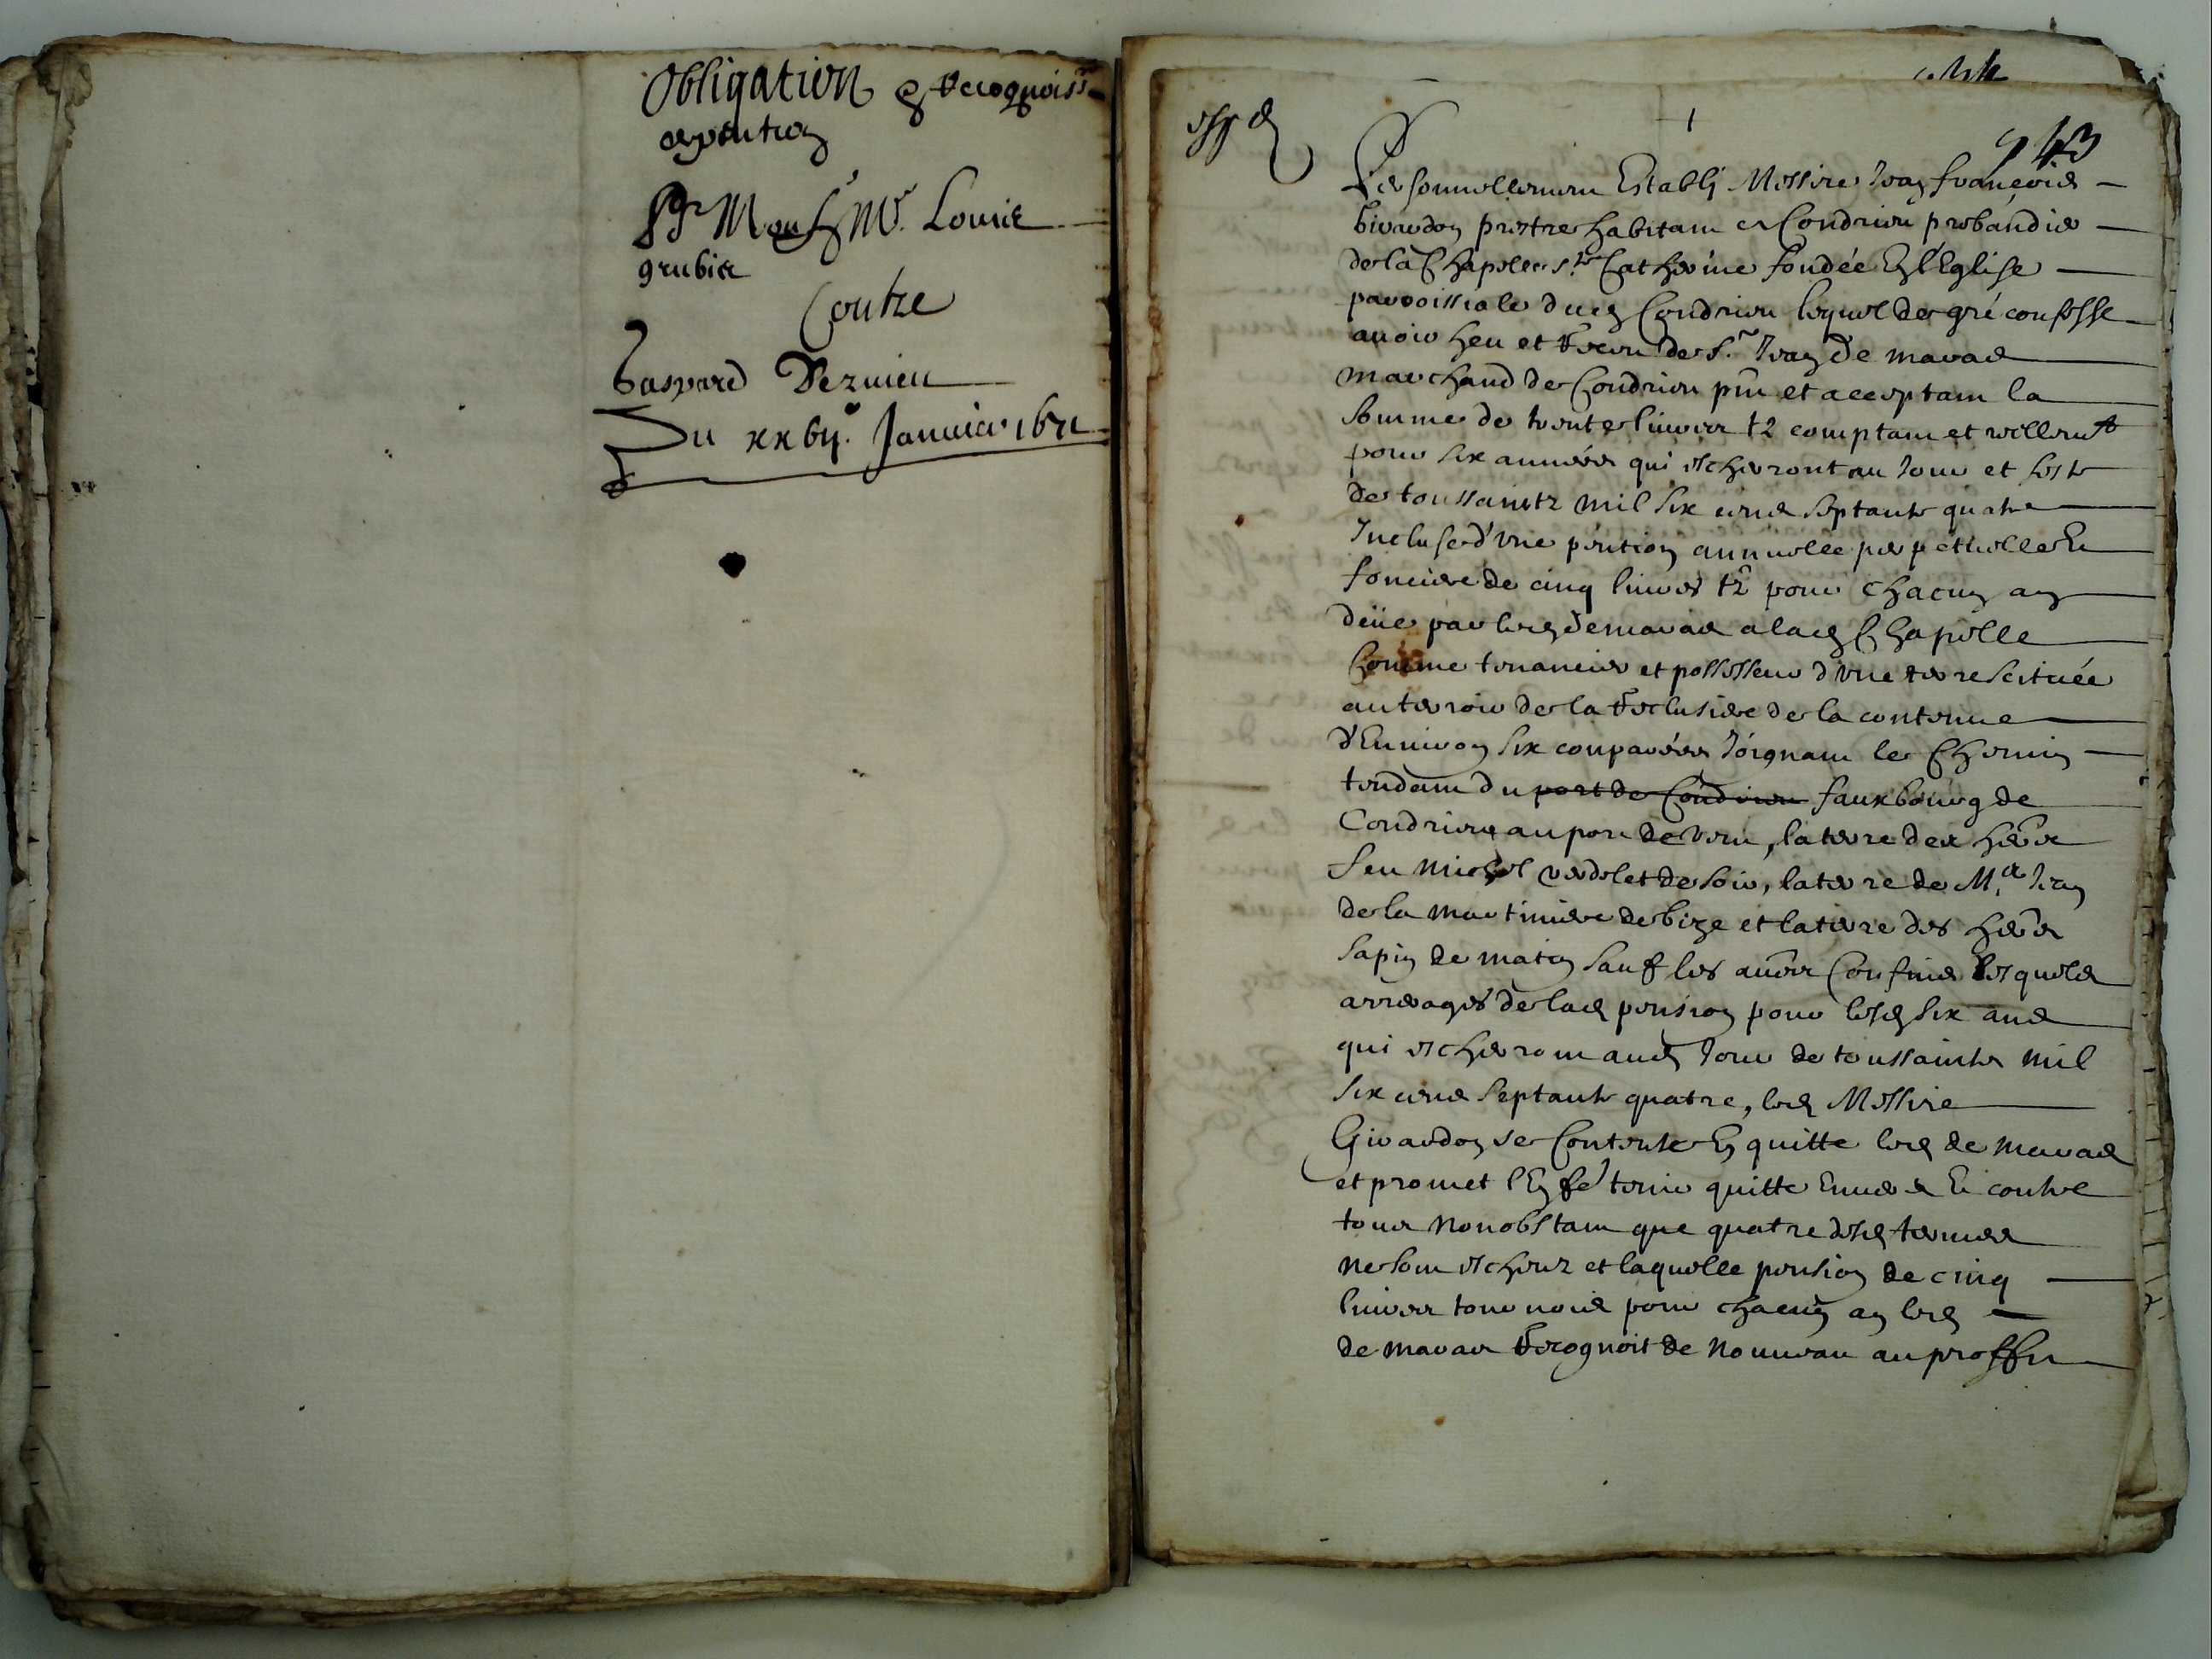 Obligation & recognoiss
de pention
Pr Mons Mr. Louis
grubis
Contre
Gaspard Dezuieu
Du xxbij. Januier 1671
943
Personnellement Estably Messire Jean françois
Girardon prestre habitant a Condrieu prebandier
de la Chapelle Ste Catherine fondée En l'Eglise
parroissiale dud Condrieu lequel de gré confesse
auoir heu et receu de Sr. Jean de maras
marchand de Condrieu pnt et acceptant la
somme de trente liures tz comptant et reellemt
pour six années qui escherront au Jour et feste
de toussaintz mil six cens septante quatre
Incluse d'vne pention annuelle perpetuelle Et
fonciere de cinq liures tz pour chacun an
deüe par led de maras a lad Chapelle
Comme tenancier et possesseur d'vne terre scituée
au terroir de la Recluziere de la contenue
d'Enuiron six couparées Joignant le Chemin
tendant du port de Condrieu fauxbourg de
Condrieu au port de vent, la terre des hers
feu michel verdolet de soir, la terre de Me Jean
de la martiniere de bize et la terre des hers
sapin de matin sauf les aues Confins desquels
arrerages de lad pension pour lesd six ans
qui escherront aud Jour de toussaints mil
six cens septante quatre, led Messire
Girardon se Contente En quitte led de maras
et promet l'En fe tenir quitte Enuers Et contre
tous nonobstant que quatre desd termes
ne sont escheuz et laquelle pension de cinq
liures tournois pour chacun an led
de maras Recognoit de nouueau au proffit